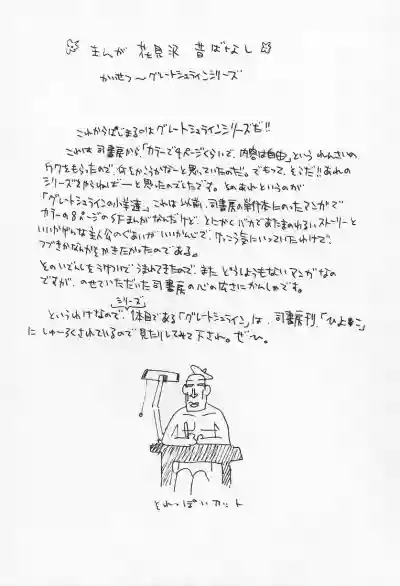 まんが 花見沢 昔ばなし
かいせつ〜グレートシュラインシリーズ
これからはじまるのはグレートシュラインシリーズだ!!
これは司書房から、「カラーで4ページぐらいで、内容は自由」というれんさいの
ワクをもらったので、何をかこうかなーと思っていたのだ。でもって、そうだ!!あれの
シリーズをやらねばーと思ったのでしたです。そのあれというのが
「グレートシュラインの小学達」、これは以前、司書房の単行本にのったマンガで
カラーの8ページのSFまんがなんだけど、とにかくバカであたまのわるいストーリーと
いいかげんな主人公のぐあいがいいかんじで、けっこう気にいっていたわけで、
つづきかなんかをかきたかったのである。
そのいでんしをうけついでうまれてきたので、またどうしようもないマンガなの
ですが、のせていただいた司書房の心の広さにかんしゃです。
というわけなので、シリーズ1本目である「グレートシュライン」は、司書房刊、「ひよこ
にしゅーろくされているので見たりしてみて下され。ぜひ。
それっぽいカット